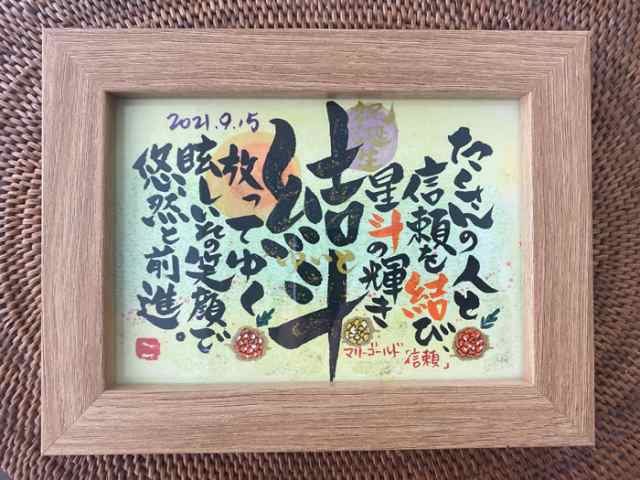 たくさんの人と
信頼を結び、
星斗の輝き
結斗
放ってゆく
眩しいその笑顔で
悠然と前進。
2021.9.15
マリーゴールド「信頼」